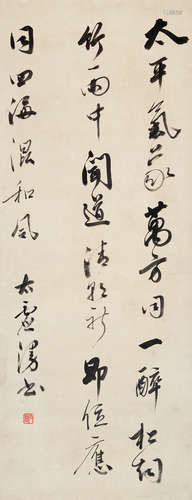 太平氣象萬方同一醉松
竹雨中聞道清朝新即位應
同四海混和風
太虛漫書